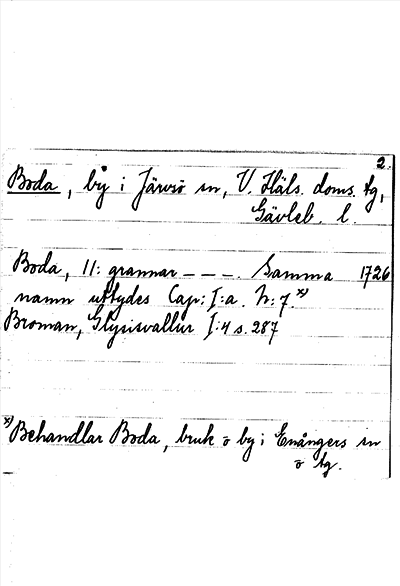 2.
Boda, by i Järvsö sn, V. Häls. doms. tg,
Gävleb. l.
Boda, 11: grannar – – –. Samma 1726
namn uttydes Cap: I:a. N: 7. x)
Broman, Glysisvallur I:4 s. 287
x) Behandlar Boda, bruk o by i Enångers sn
o tg.